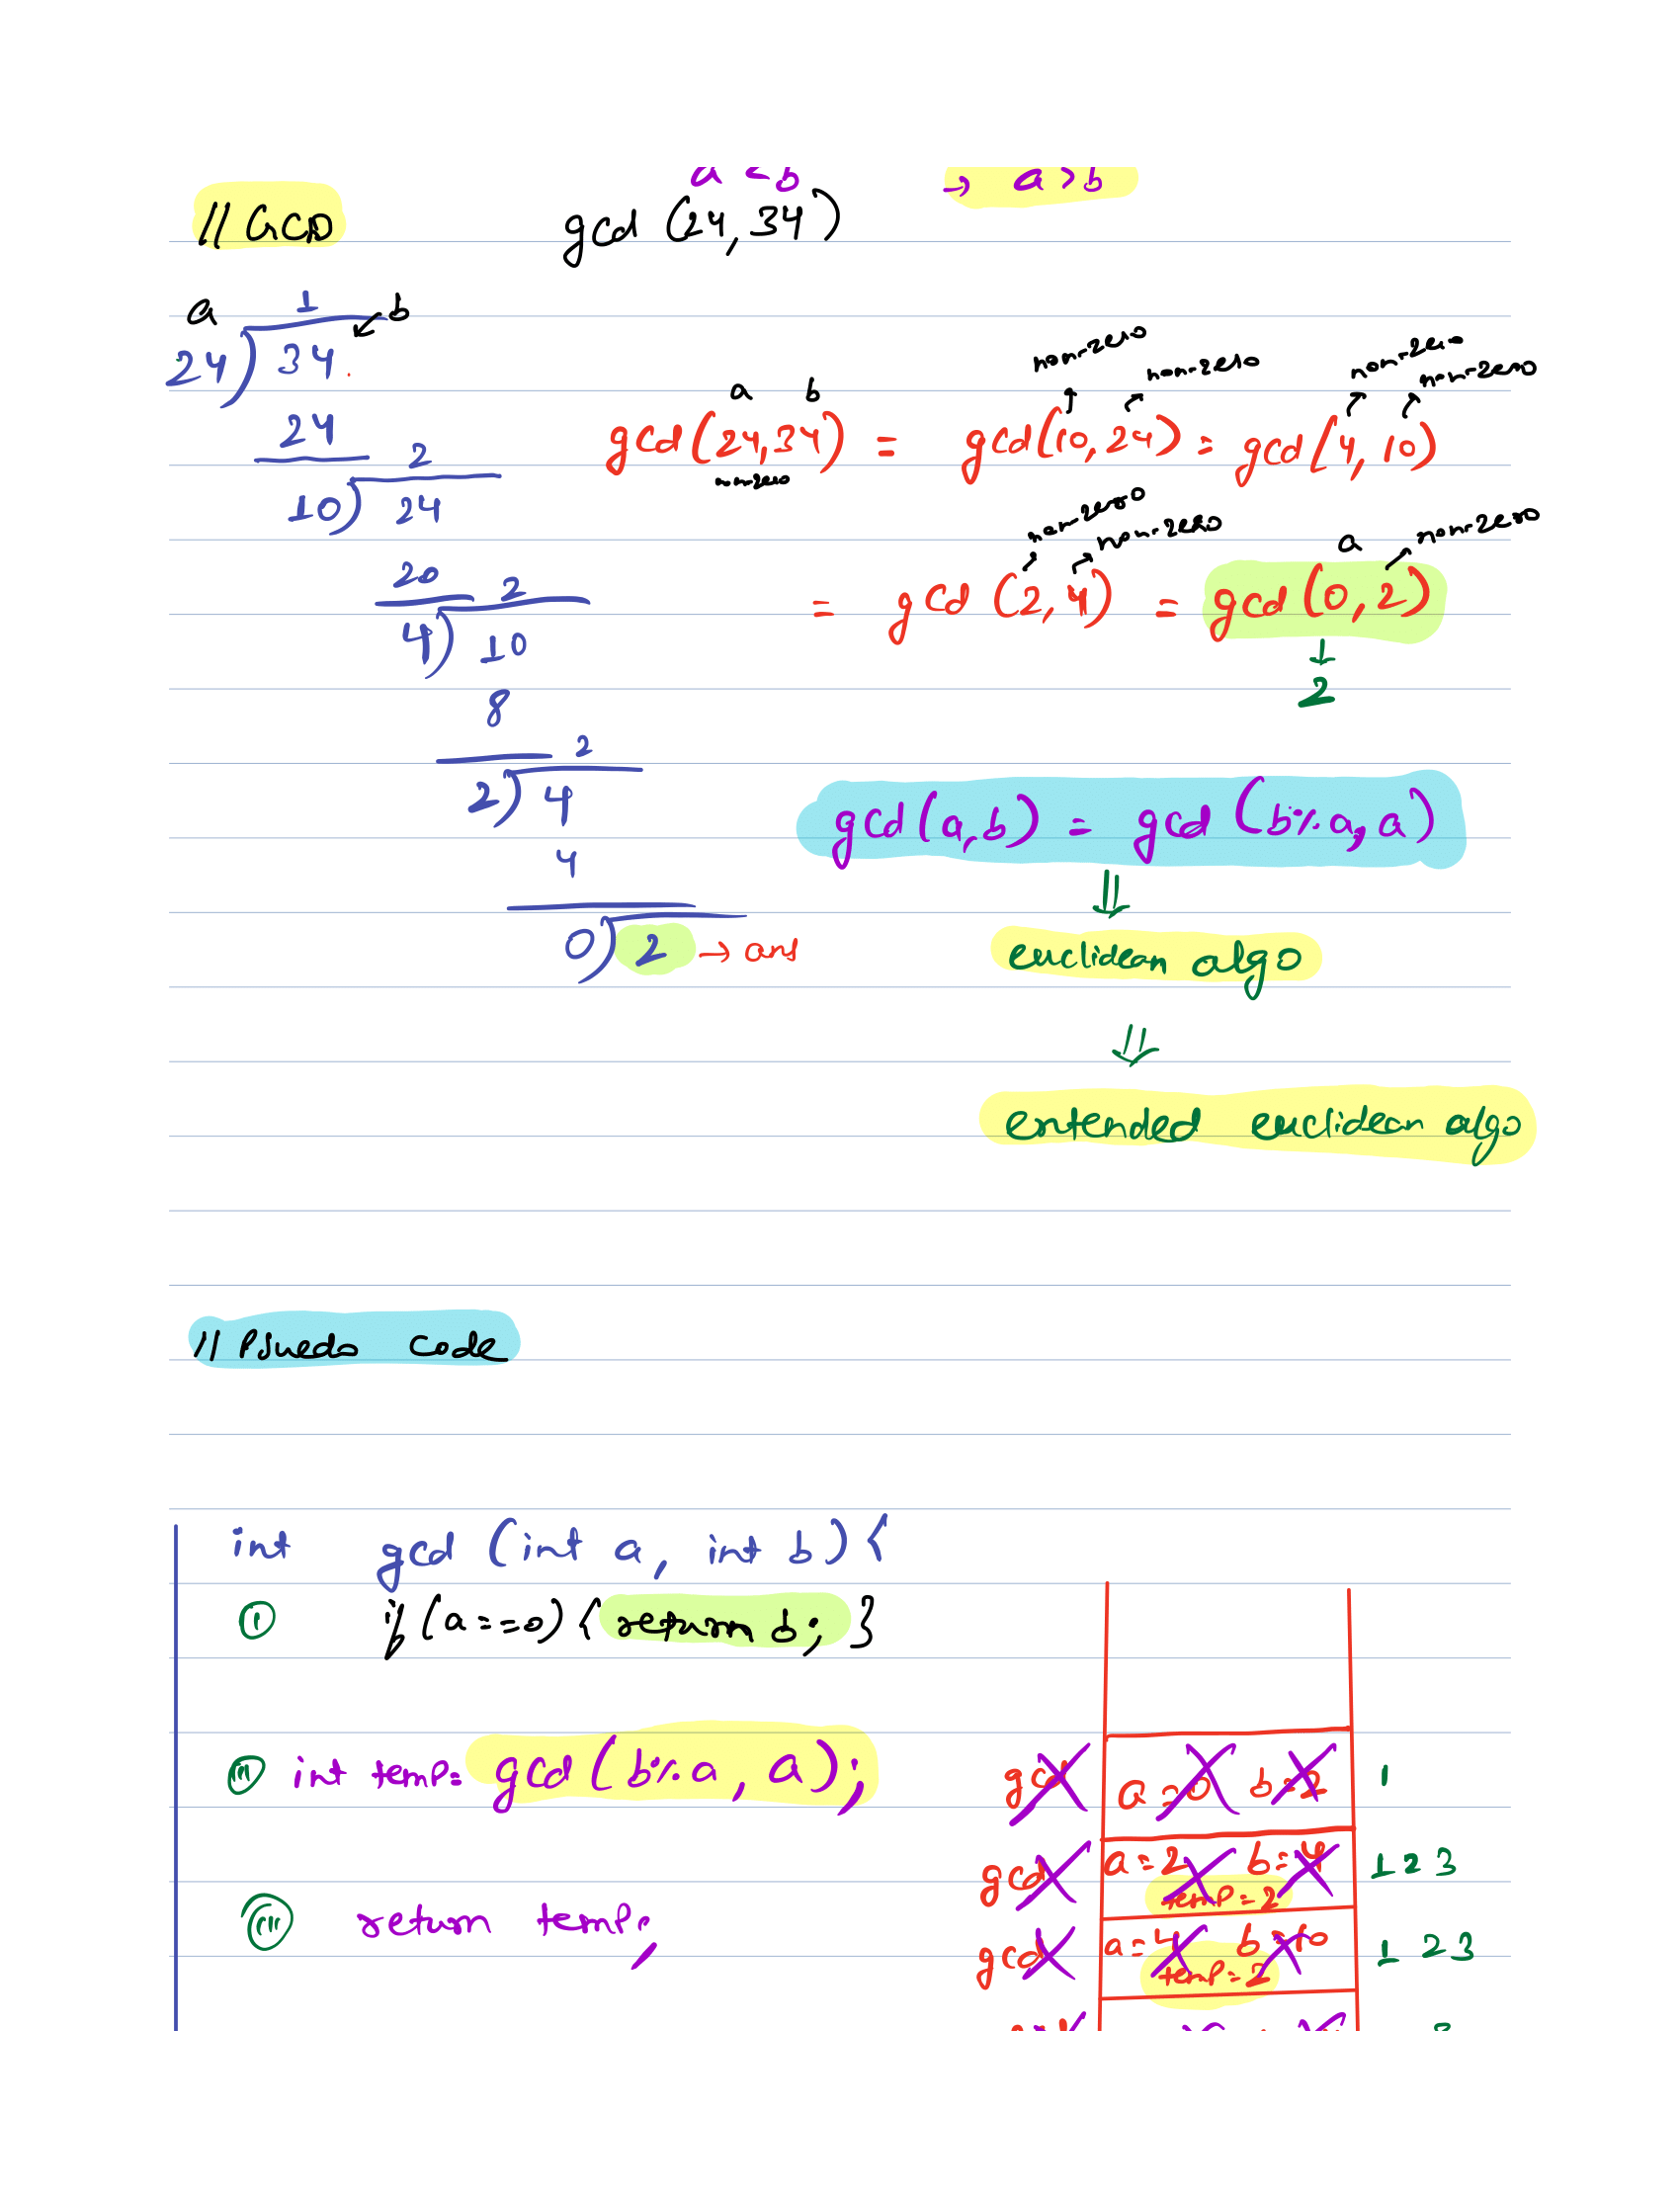 a < b → a > b
// GCD gcd (24, 34)
a 1 b
24) 34
24
2
10) 24
20
2
4) 10
8
2
2) 4
4
0) 2 → ans
non-zero non-zero non-zero non-zero
a b
gcd(24,34) = gcd(10,24) = gcd(4, 10)
non-zero
non-zero non-zero a non-zero
= gcd (2,4) = gcd(0,2)
2
gcd(a,b) = gcd (b%a, a)
euclidean algo
entended euclidean algo
// Psuedo Code
int gcd (int a, int b) {
(i) if (a==0) { return b; }
(ii) int temp= gcd (b%a, a);
(iii) return temp;
gcd a=0 b=2 1
gcd a=2 b=4 1 2 3
temp=2
gcd a=4 b=10 1 2 3
temp=2